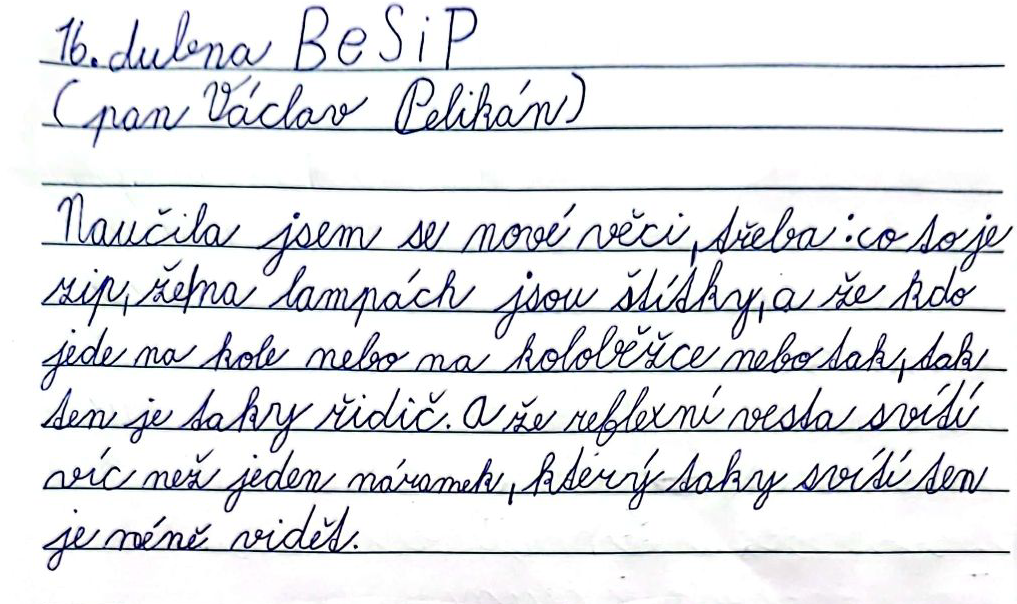 16. dubna BeSiP
(pan Václav Pelikán)
Naučila jsem se nové věci, třeba: co to je
zip, že na lampách jsou štítky, a že kdo
jede na kole nebo na koloběžce nebo tak, tak
ten je taky řidič. A že reflexní vesta svítí
víc než jeden náramek, který taky svítí ten
je méně vidět.